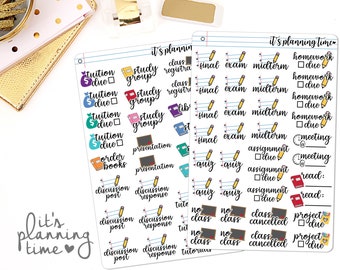 it's planning
it's planning time
tuition due
study group
class registrat
tuition due
study group
tuition due
study group
tuition due
order books
presentation
presentation
discussion post
discussion response
discussion post
discussion response
discussion post
discussion response
tutoring
final exam midterm homework due
final exam midterm homework due
final exam midterm homework due
final exam midterm meeting
quiz quiz assignment due meeting
quiz quiz assignment due read:
quiz quiz assignment due read:
no class no class class cancelled project due
no class no class class cancelled project due
it's
planning
time